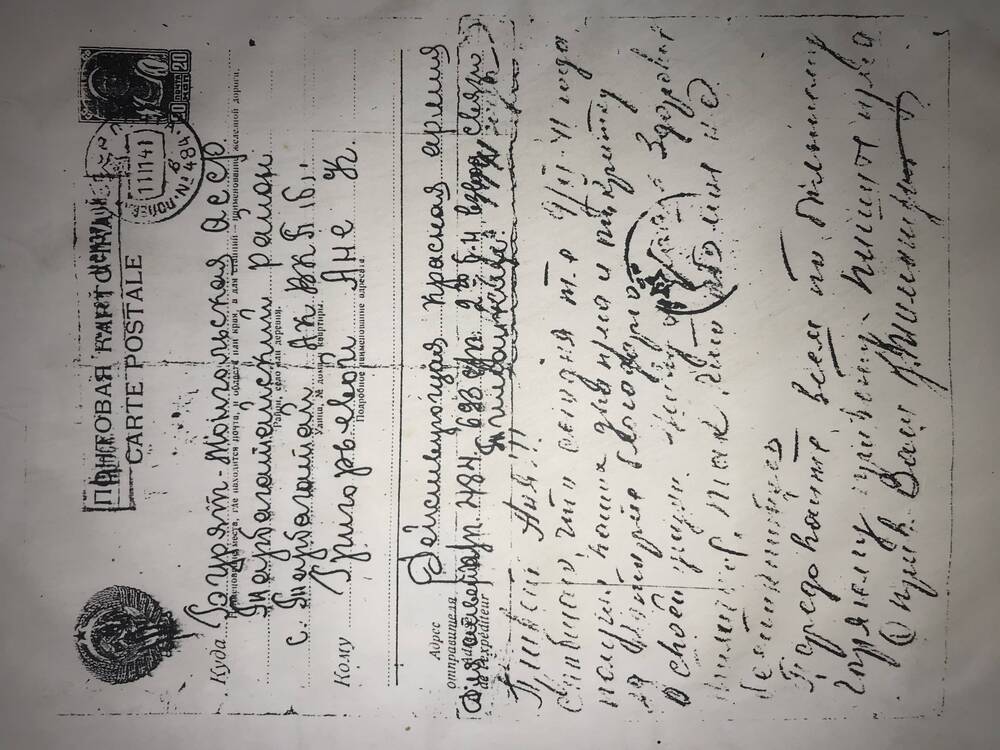 ПОЧТОВАЯ КАРТОЧКА
CARTE POSTALE
20 ПОЧТА 20
КОП
11 II 41
№ 484
Куда Бурят-Монгольская АССР.
Наименование места, где находится почта, и области или края, а для станций — наименование железной дороги.
Тарбагатайский район
Район, село или деревня.
с. Тарбагатай, АК ВКП(б).
Улица, № дома и квартиры.
Кому Григорьевой Ане К.
Подробное наименование адресата.
Адрес отправителя
Действующая красная армия
de l'expéditeur
484 693 с/п. 2 взвод связи
Привет Аня!!!
Сообщаю, что сегодня т.е 9/II-41 года
получил ваших два п/ма и открытку
за которые благодарю
О своей жизни. Живу Здоровье
так что обо мне не
беспокойтесь
Передовайте всем по большому
горячему привету. Пишите п/ма
С прив Ваш